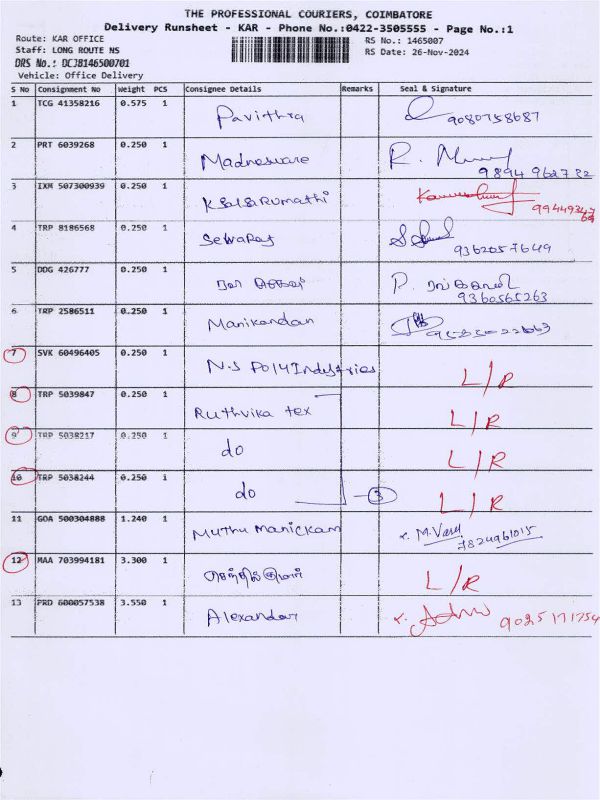 THE PROFESSIONAL COURIERS, COIMBATORE
Delivery Runsheet - KAR - Phone No.:0422-3505555 - Page No.:1
Route: KAR OFFICE RS No.: 1465007
Staff: LONG ROUTE NS RS Date: 26-Nov-2024
DRS No.: DCJ8146500701
Vehicle: Office Delivery
S No Consignment No Weight PCS Consignee Details Remarks Seal & Signature
1 TCG 41358216 0.575 1 Pavithra 9080758687
2 PRT 6039268 0.250 1 R.
98949 62732
3 IXM 507300939 0.250 1
4 TRP 8186568 0.250 1 SelvaRaj
9362057649
5 DDG 426777 0.250 1 P.
9360565263
6 TRP 2586511 0.250 1 Manikandan
7 SVK 60496405 0.250 1 N.S Poly Industries L/R
8 TRP 5039847 0.250 1 Ruthvika tex L/R
9 TRP 5038217 0.250 1 do L/R
10 TRP 5038244 0.250 1 do 3 L/R
11 GOA 500304888 1.240 1 Muthu Manickam
7824961015
12 MAA 703994181 3.300 1 செந்தில்குமார் L/R
13 PRD 600057538 3.550 1 Alexandar 9025171754